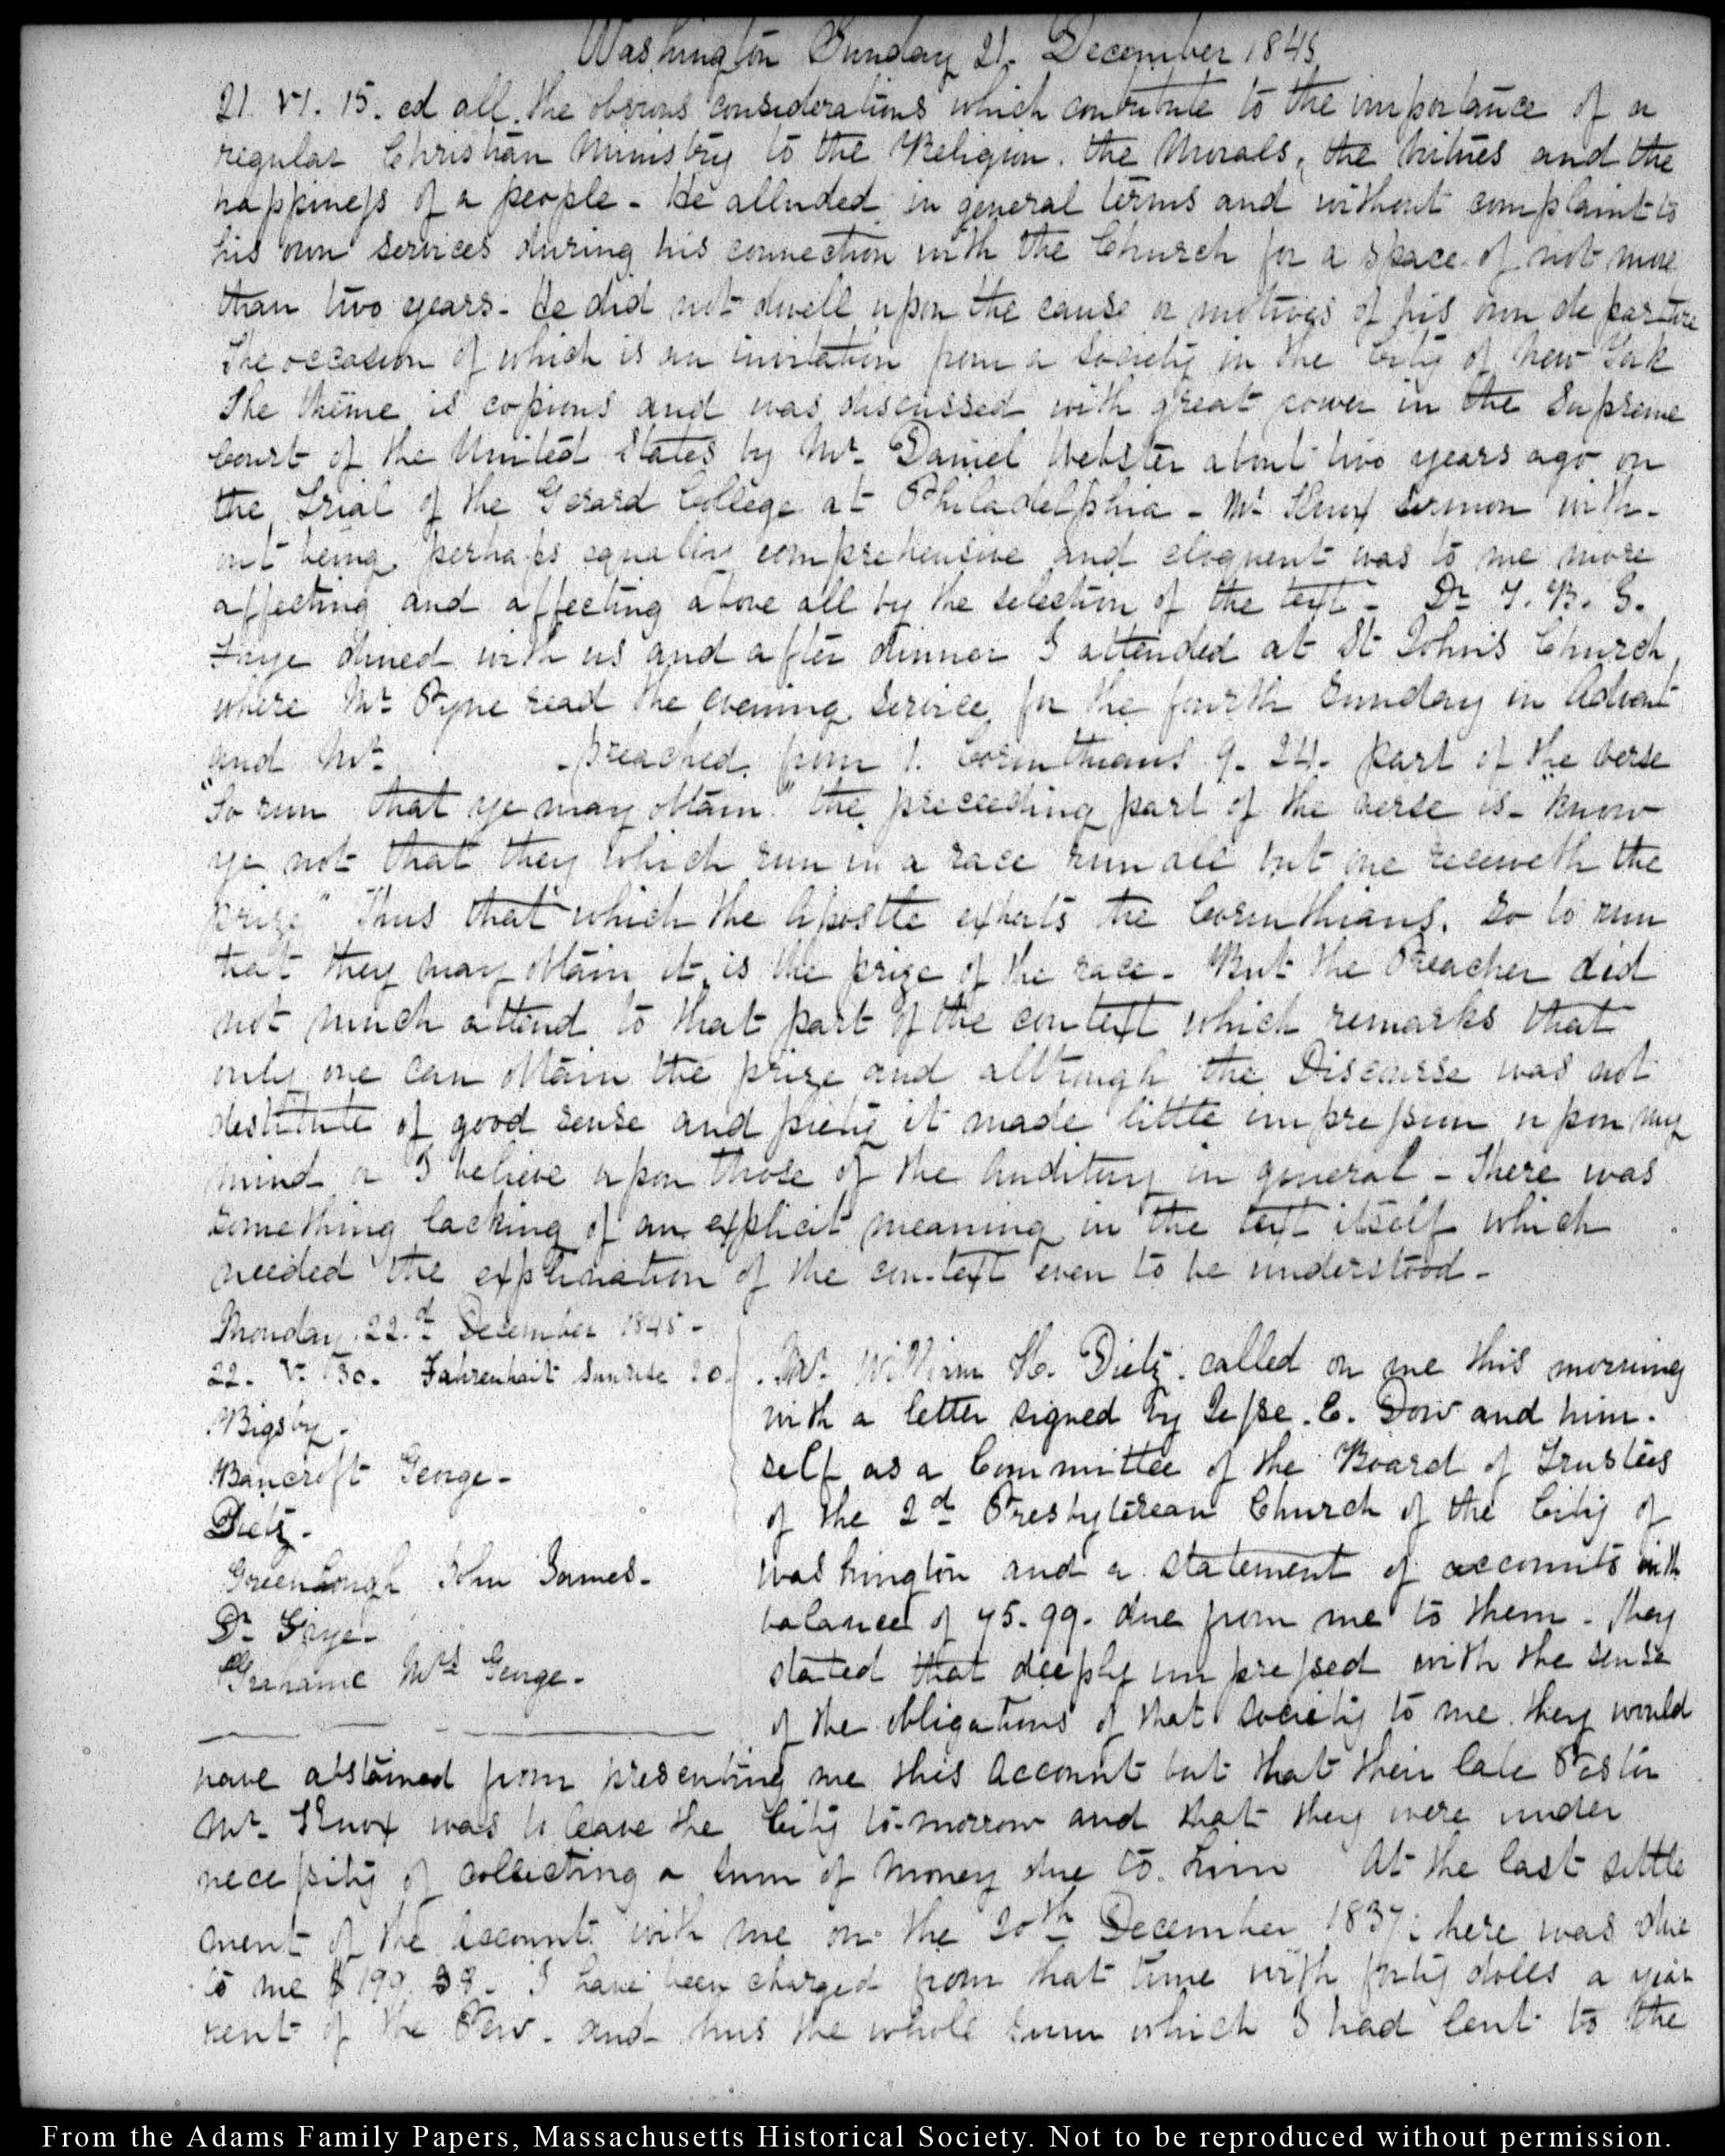 Washington Sunday 21. December 1845
21. VI. 15. ed all the obvious considerations which contribute to the importance of a
regular Christian Ministry to the Religion. the Morals, the virtues and the
happiness of a people - He alluded in general terms and without complaint to
his own services during his connection with the Church for a space of not more
than two years - He did not dwell upon the cause or motives of his own departure
The occasion of which is an invitation from a Society in the City of New York
The theme is copious and was discussed with great power in the Supreme
Court of the United States by Mr. Daniel Webster about two years ago on
the Trial of the Gerard College at Philadelphia - Mr Knox sermon with-
out being perhaps equally comprehensive and eloquent was to me more
affecting and affecting above all by the selection of the text - Dr
dined with us and after dinner I attended at St John's Church,
where Mr Pyne read the evening service for the fourth Sunday in Advent
and Mr - preached from 1. Corinthians 9. 24. part of the verse
"So run that ye may obtain" the preceeding part of the verse is - "Know
ye not that they which run in a race run all but one receiveth the
prize" Thus that which the Apostle exhorts the Corinthians. so to run
that they may obtain it, is the prize of the race - But the Preacher did
not much attend to that part of the context which remarks that
only one can obtain the prize and although the Discourse was not
destitute of good sense and piety it made little impression upon my
mind or I believe upon those of the Auditory in general - There was
something lacking of an explicit meaning in the text itself which
needed the explanation of the con-text even to be understood -
Monday. 22.d December 1845 -
22. V. 30. Fahrenheit Sunrise 20.
Bigsby -
Bancroft George -
Dietz -
Greenhough John James -
Dr Gaye -
Grahame Mrs George -
Mr. William H. Dietz. called on me this morning
with a letter signed by Jesse. E. Dow and him-
self as a Committee of the Board of Trustees
of the 2d Presbyterean Church of the City of
Washington and a statement of accounts with
balance of 45. 99. due from me to them - They
stated that deeply impressed with the sense
of the obligations of that Society to me they would
have abstained from presenting me this Account but that their late Pastor
Mr. Knox was to leave the City to-morrow and that they were under
necessity of collecting a sum of money due to him At the last settle
ment of the account with me on the 20th December 1837. there was due
to me $199. 39 - I have been charged from that time with forty dolls a year
rent of the Pew. and thus the whole sum which I had lent to the
From the Adams Family Papers, Massachusetts Historical Society. Not to be reproduced without permission.